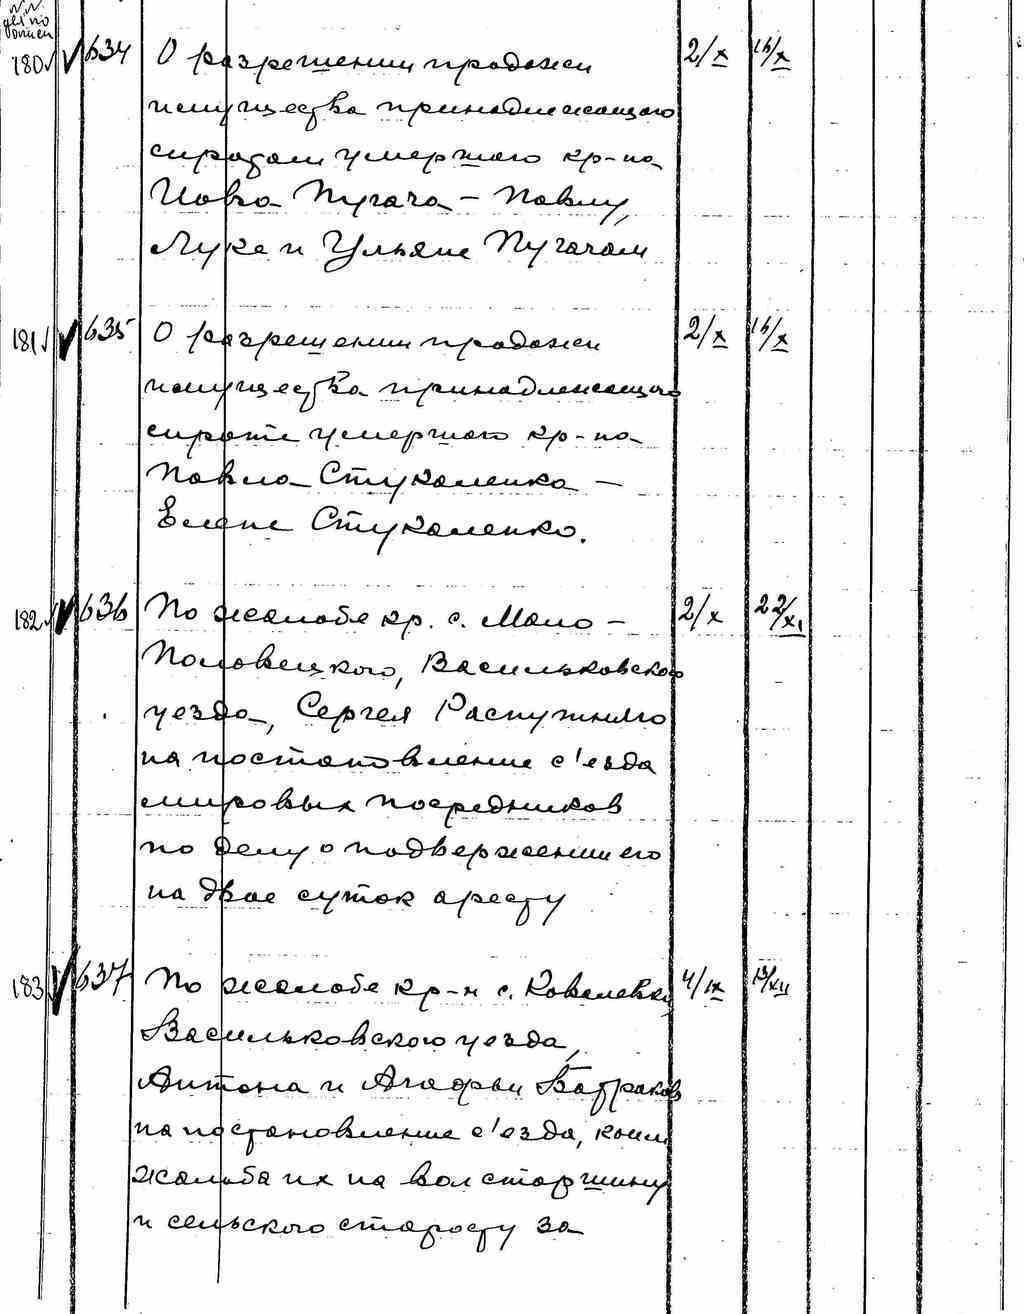 N.N.
дел по
описи
180 634 О разрешении продажи 2/X 16/X
имущества принадлежащаго
сиротам умершого кр-на
Иова Пугача – Павлу,
Луке и Ульяне Пугачам
181 635 О разрешении продажи 2/X 16/X
имущества принадлежащаго
сироте умершого кр-на
Павла Стукаленка –
Елене Стукаленко.
182 636 По жалобе кр. с. Мало- 2/X 22/XI
Половецкого, Васильковского
уезда, Сергея
на постановление с'езда
мировых посредников
по делу о подвержении его
на двое суток аресту
183 637 По жалобе кр-н с. Ковалевки, 4/IX 13/XII
Васильковского уезда,
Антона и Агафьи
на постановление с'езда, коим
жалоба их на вол старшину
и сельского старосту за